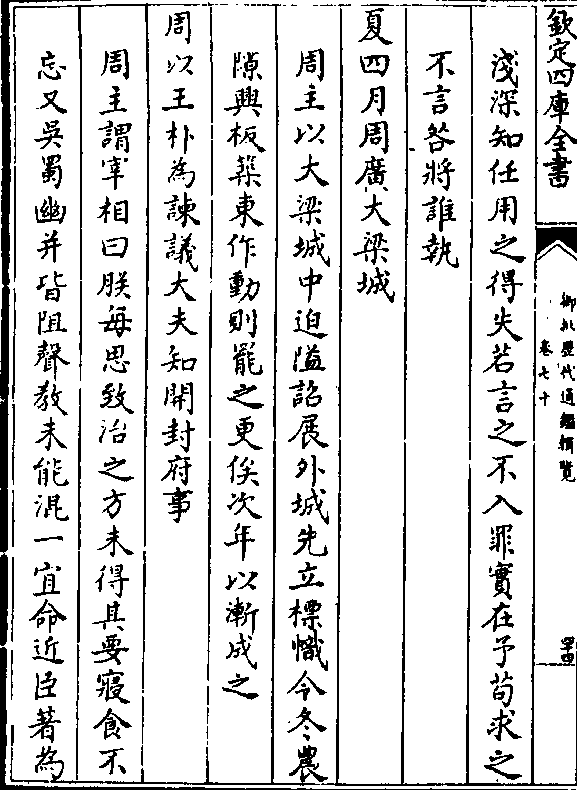 欽定四庫全書
御批歷代通鑑輯覽
卷七十
罕四
淺深知任用之得失若言之不入罪實在予茍求之
不言咎將誰執
夏四月周廣大梁城
周主以大梁城中迫隘詔展外城先立標幟今冬農
隙興板築東作動則罷之更俟次年以漸成之
周以王朴為諫議大夫知開封府事
周主謂宰相曰朕每思致治之方未得其要寢食不
忘又吳蜀幽并皆阻聲教未能混一宜命近臣著為